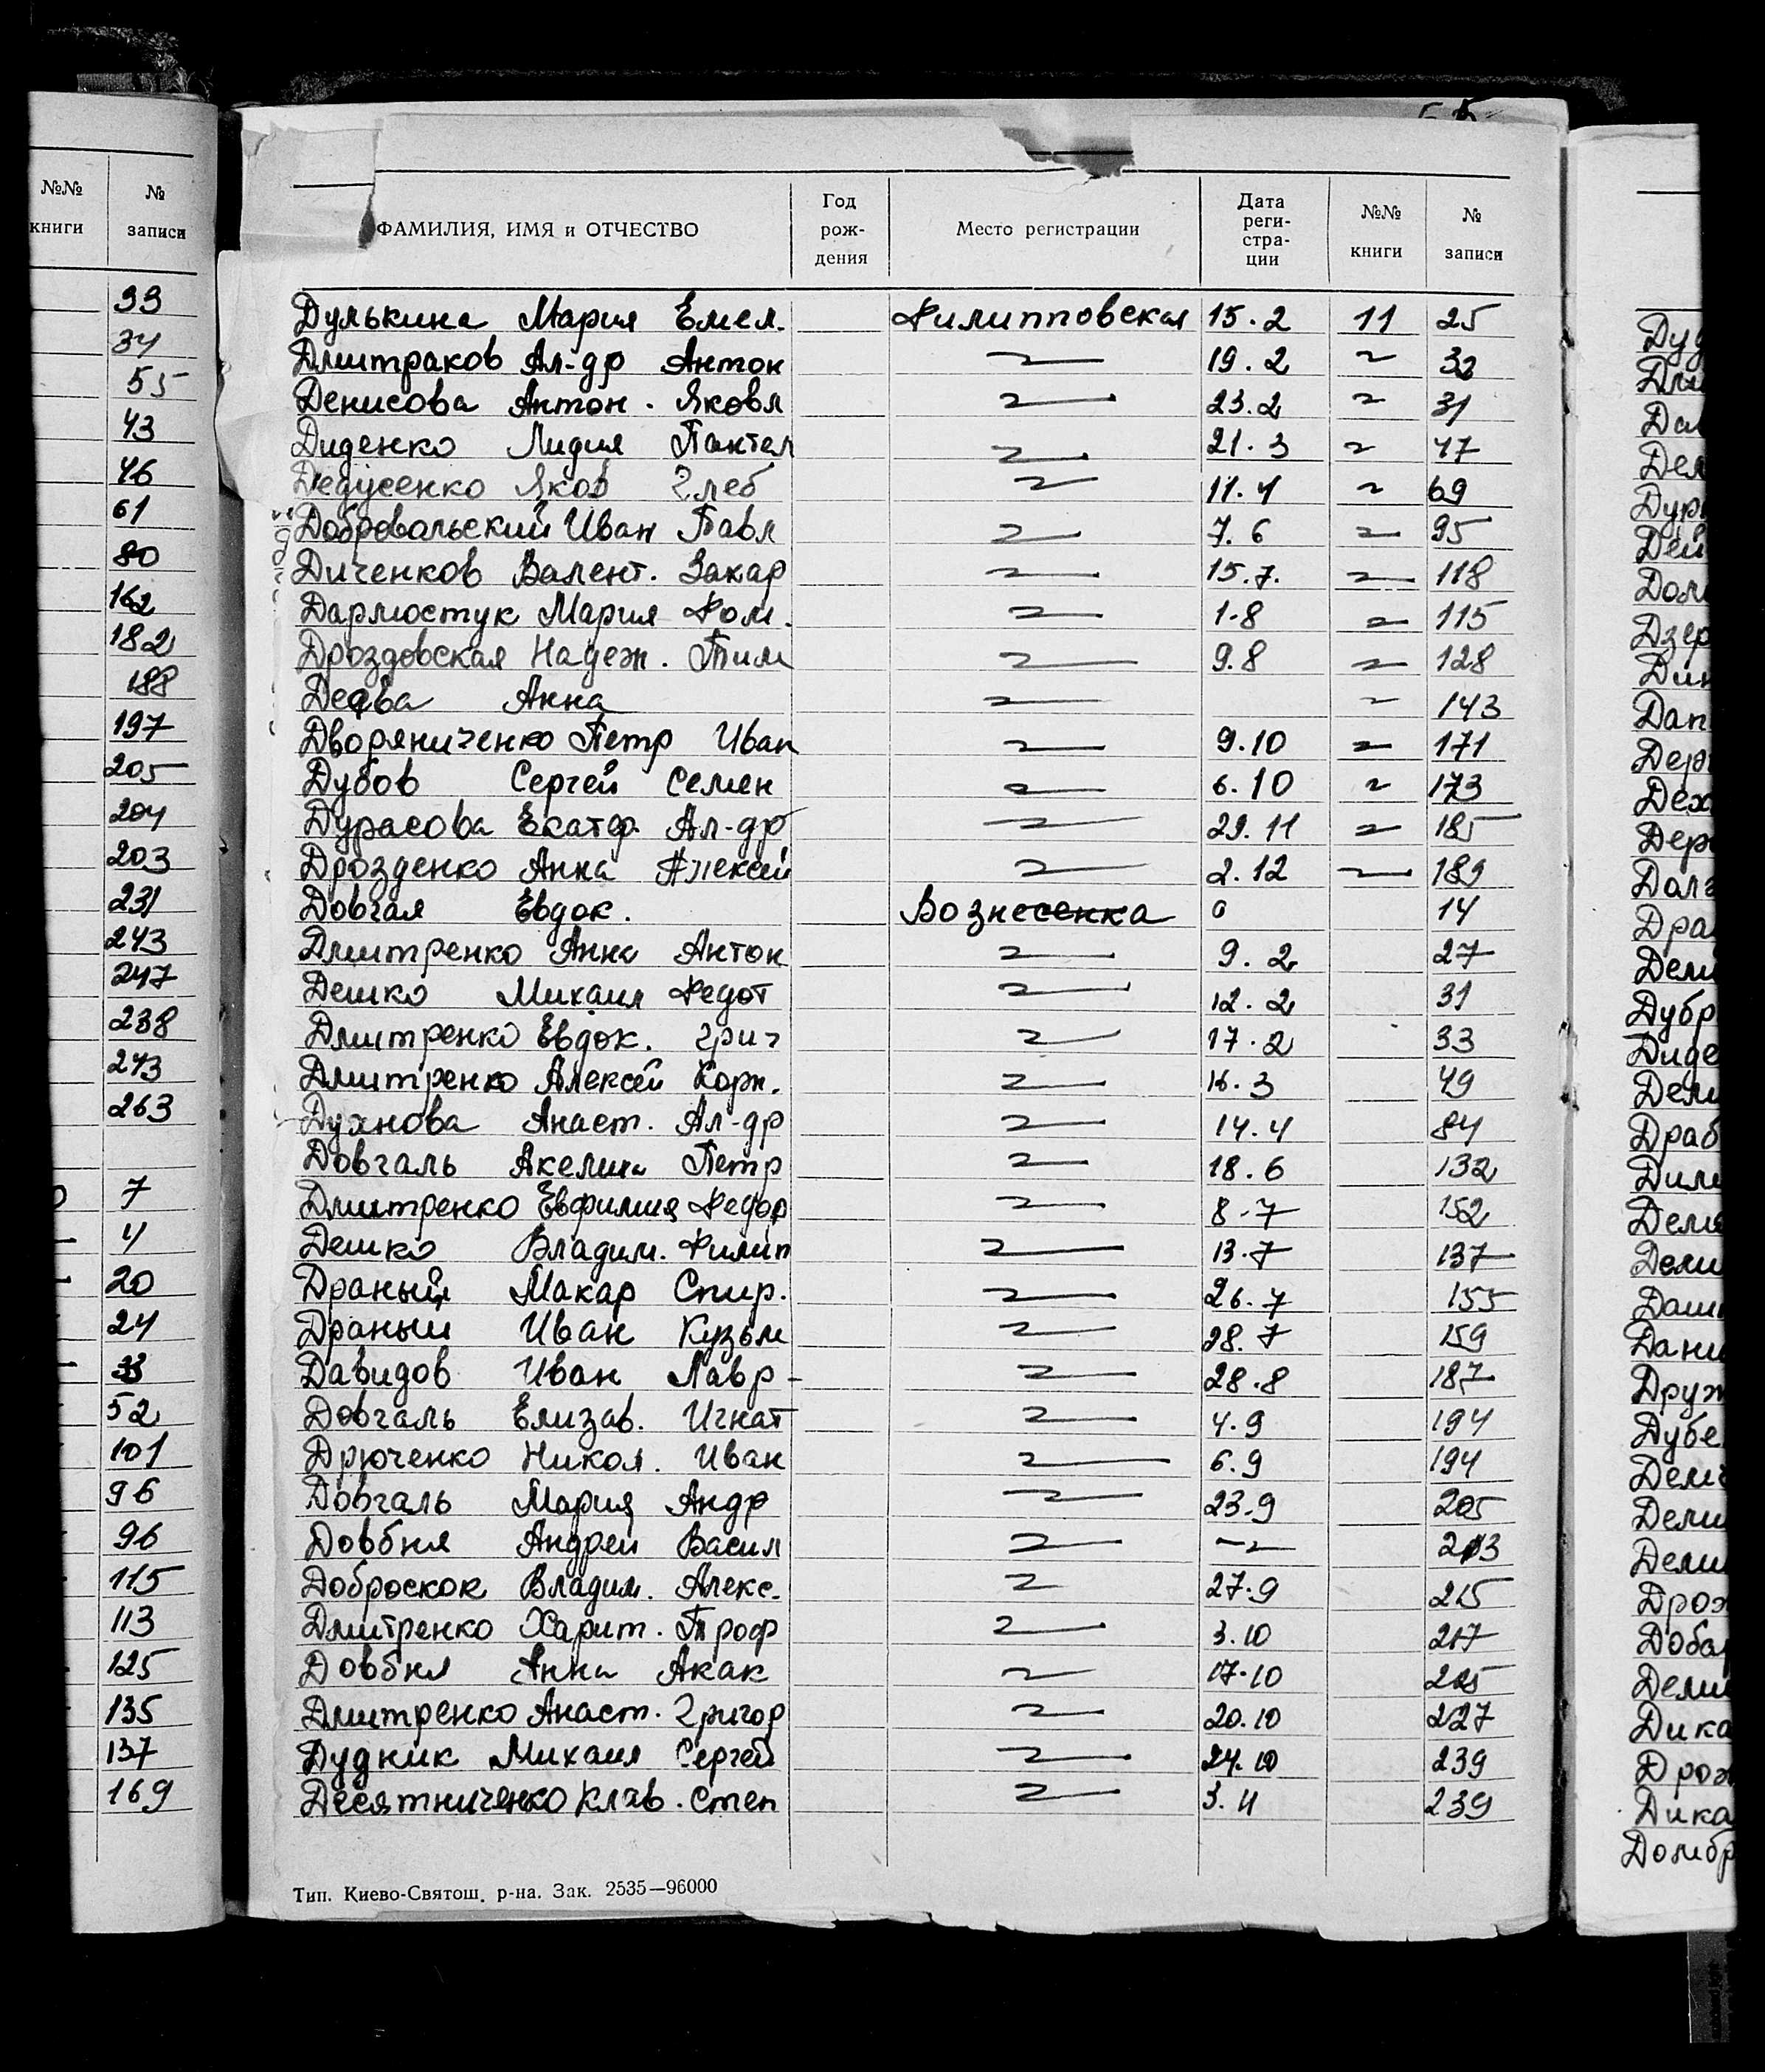 №№ книги № записи
33
34
55
43
46
61
80
162
182
188
197
205
204
203
231
243
247
238
243
263
7
4
20
24
33
52
101
96
96
115
113
125
135
137
169
ФАМИЛИЯ, ИМЯ и ОТЧЕСТВО Год рож- дения Место регистрации Дата реги- стра- ции №№ книги № записи
Дулькина Мария Емел. Филипповская 15.2 11 25
Дмитраков Ал-др Антон 19.2 32
Денисова Антон. Яковл 23.2 31
Диденко Лидия Пантел 21.3 47
Дедусенко Яков Глеб 11.4 69
Добровальский Иван Павл 7.6 95
Диченков Валент. Захар 15.7. 118
Дармостук Мария Фом. 1.8 115
Дроздовская Надеж. Тим 9.8 128
Анна 143
Дворяниченко Петр Иван 9.10 171
Дубов Сергей Семен 6.10 173
Дурасова Екатер. Ал-др 29.11 185
Дрозденко Анна Алексей 2.12 189
Довгая Евдок. Вознесенка 0 14
Дмитренко Анна Антон 9.2 27
Дешко Михаил Федот 12.2 31
Дмитренко Евдок. Григ 17.2 33
Дмитренко Алексей Корн. 16.3 49
Духнова Анаст. Ал-др 14.4 84
Довгаль Акелина Петр 18.6 132
Дмитренко Евфимия Федор 8.7 152
Дешко Владим. Филип 13.7 137
Драный Макар Спир. 26.7 155
Драный Иван Кузьм 28.7 159
Давидов Иван Лавр- 28.8 187
Довгаль Елизав. Игнат 4.9 194
Дрюченко Никол. Иван 6.9 194
Довгаль Мария Андр 23.9 205
Довбня Андрей Васил 213
Доброскок Владим. Алекс. 27.9 215
Дмитренко Харит. Троф 3.10 217
Довбня Анна Акак 17.10
Дмитренко Анаст. Григор 20.10 227
Дудник Михаил Сергей 24.10 239
Десятниченко Клав. Степ 3.11 239
Тип. Киево-Святош. р-на. Зак. 2535—96000